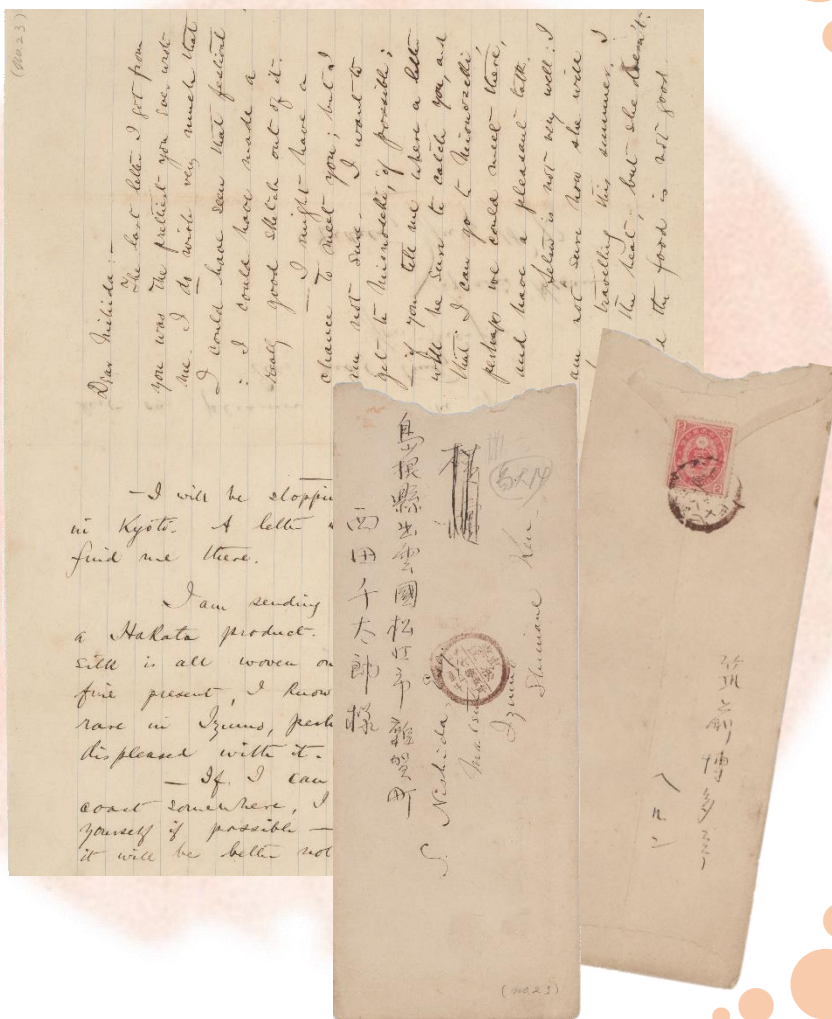 (no. 23)
Dear Nishida:—
The last letter I got from
you was the prettiest you ever wrote
me. I do wish very much that
I could have seen that festival
: I could have made a
really good sketch out of it.
— I might have a
chance to meet you; but I
am not sure. I want to
get to Mionoseki, if possible;
— if you tell me where a letter
will be sure to catch you, and
that I can go to Mionoseki,
perhaps we could meet there,
and have a pleasant talk.
is not very well: I
am not sure how she will
travelling this summer. I
the heat, but she doesn't:
the food is not good
— I will be stoppin
in Kyōto. A letter
find me there.
I am sending
a Hakata product.
silk is all woven on
fine present, I know
rare in Izumo, perh
displeased with it.
— If I can
coast somewhere, I
yourself if possible —
it will be better not
島根縣出雲國松江市雜賀町
西田千太郎様
S. Nishida, Esq.
Matsue
Izumo
Shimane Ken
(no. 23)
ヘルン